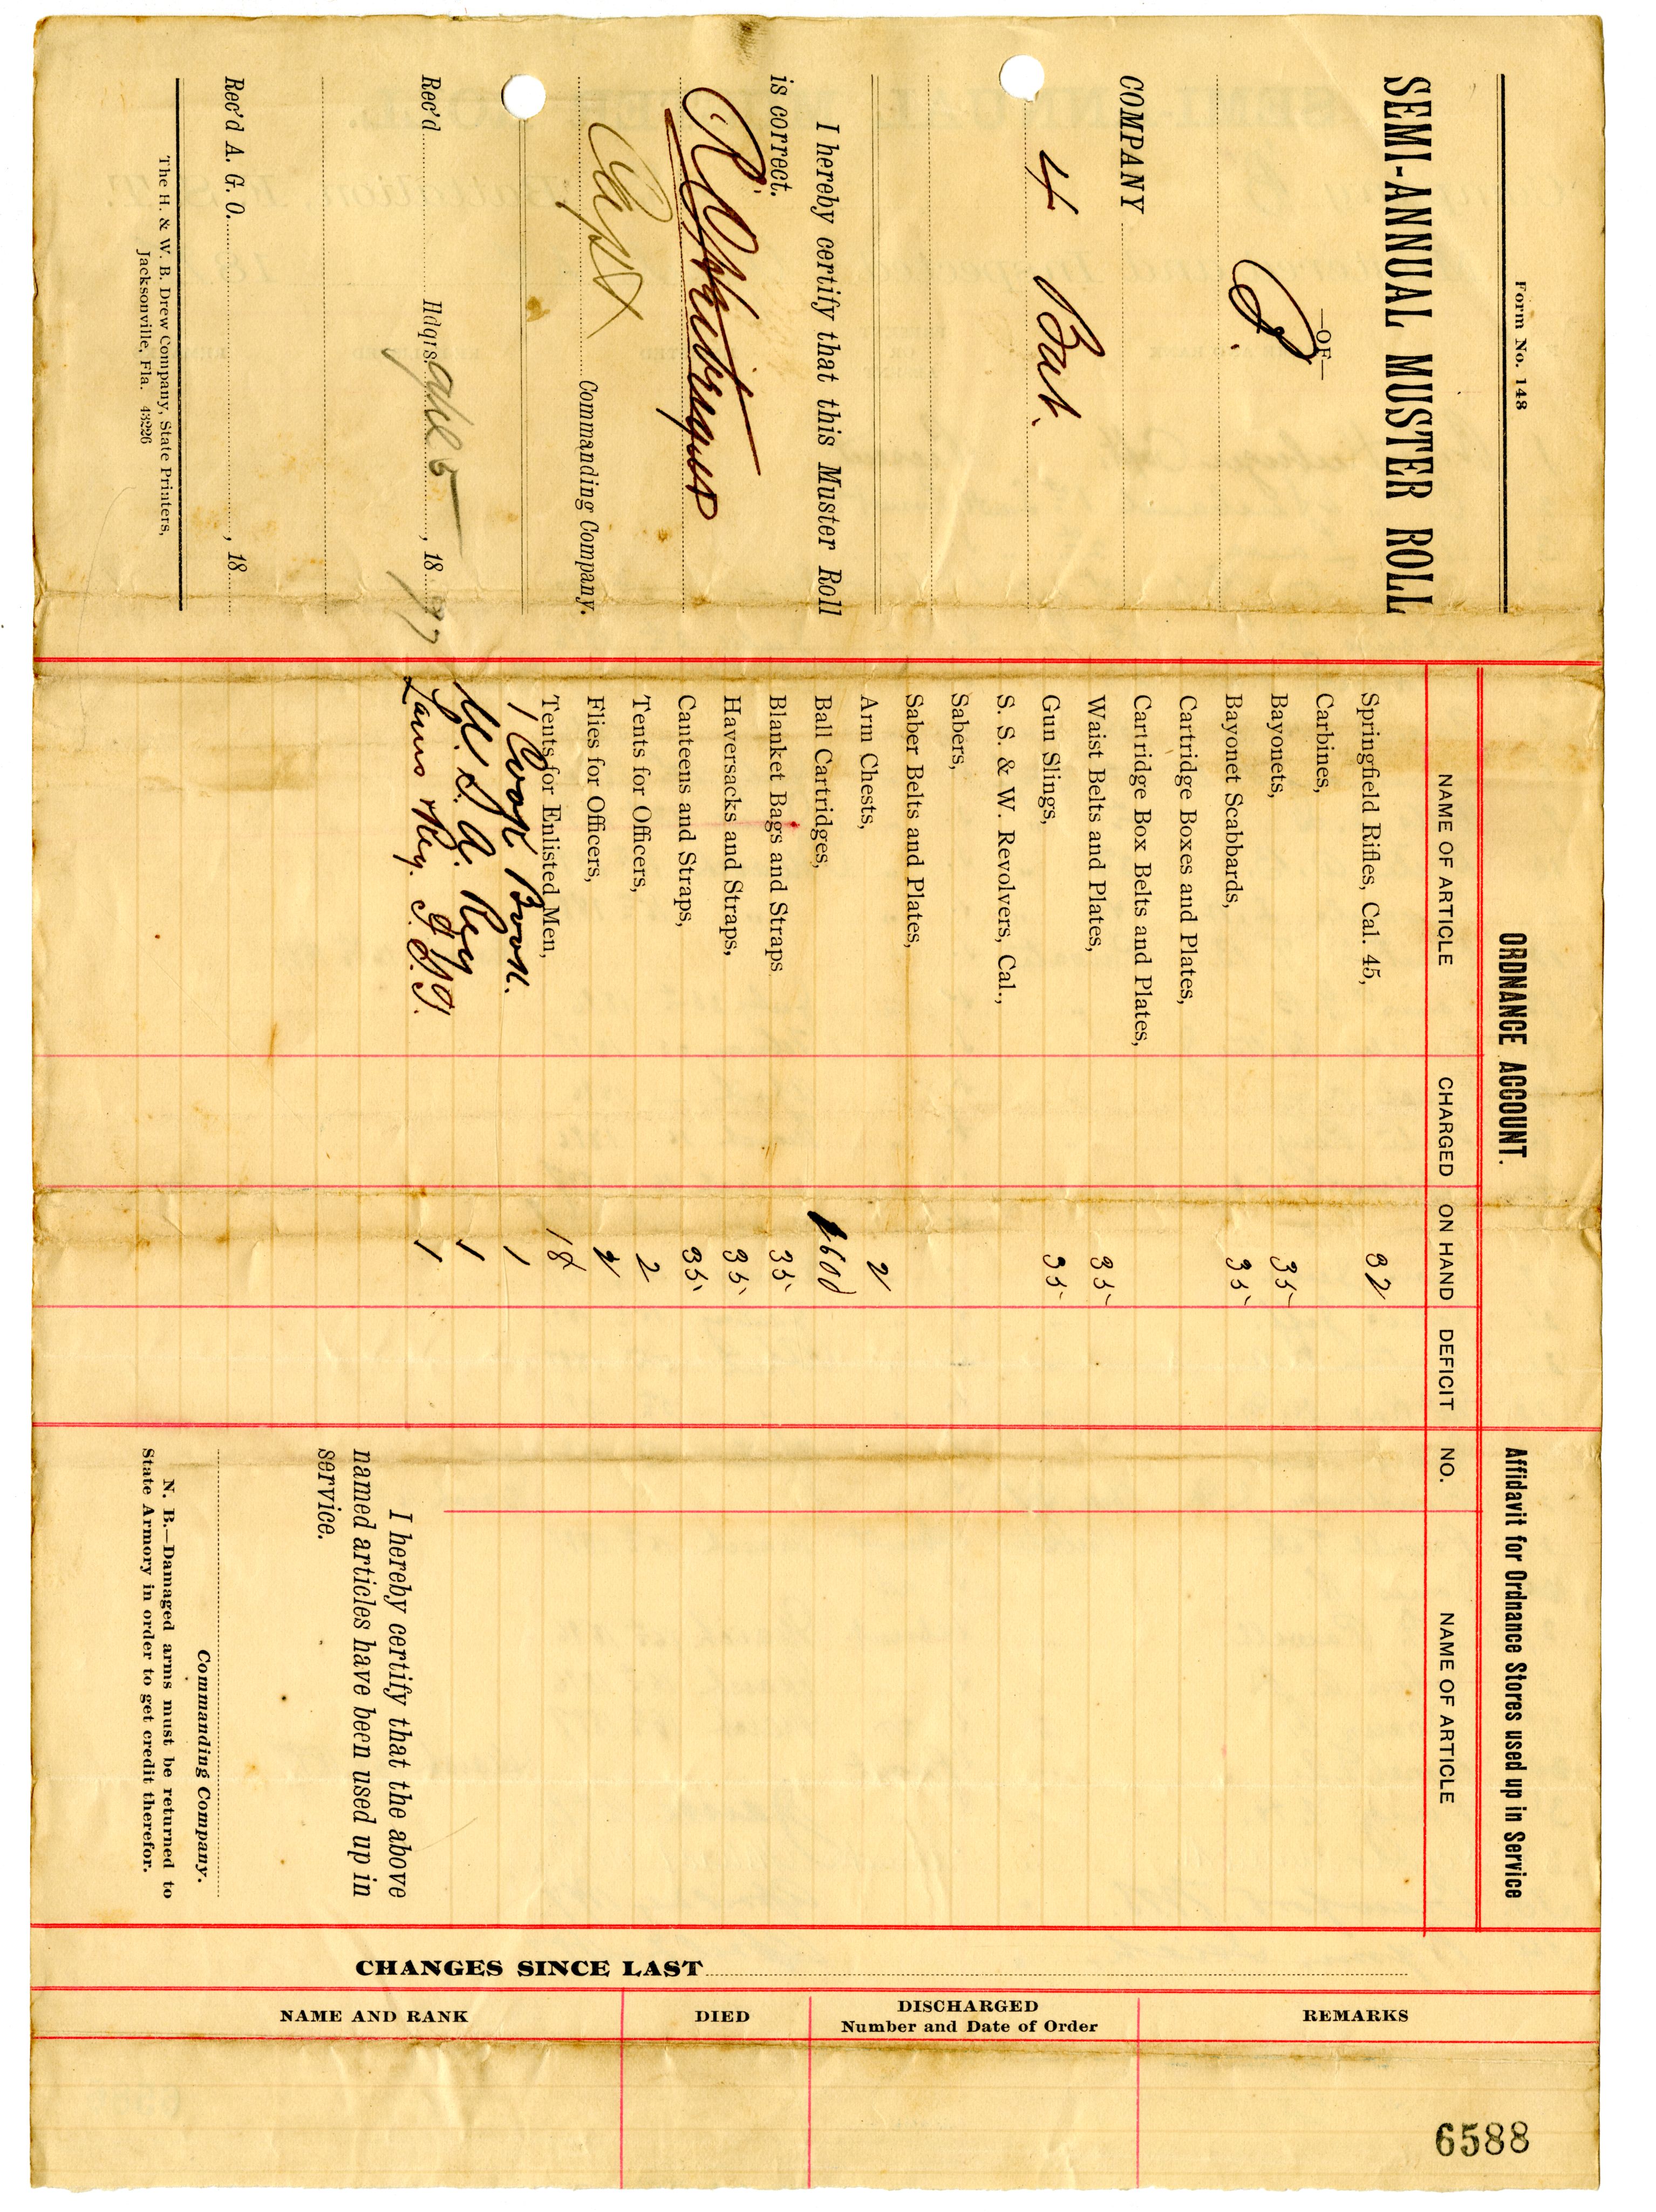 Form No. 148
SEMI-ANNUAL MUSTER ROLL
—OF—
B.
COMPANY
4 Bat.
I hereby certify that this Muster Roll
is correct.
Capt
Commanding Company.
Rec'd Hdqrs 5, 1897
Rec'd A. G. O. , 18
The H. & W. B. Drew Company, State Printers,
Jacksonville, Fla. 43226
ORDNANCE ACCOUNT.
NAME OF ARTICLE CHARGED ON HAND DEFICIT
Springfield Rifles, Cal. 45, 32
Carbines,
Bayonets, 35
Bayonet Scabbards, 35
Cartridge Boxes and Plates,
Cartridge Box Belts and Plates,
Waist Belts and Plates, 35
Gun Slings, 35
S. S. & W. Revolvers, Cal.,
Sabers,
Saber Belts and Plates,
Arm Chests, 2
Ball Cartridges, 1600
Blanket Bags and Straps 35
Haversacks and Straps, 35
Canteens and Straps, 35
Tents for Officers, 2
Flies for Officers, 2
Tents for Enlisted Men, 18
1 Cook Book. 1
U. S. A. Reg 1
Laws & Reg. F.S.T. 1
Affidavit for Ordnance Stores used up in Service
NO. NAME OF ARTICLE
I hereby certify that the above
named articles have been used up in
service.
Commanding Company.
N. B.—Damaged arms must be returned to
State Armory in order to get credit therefor.
CHANGES SINCE LAST
NAME AND RANK DIED DISCHARGED REMARKS
Number and Date of Order
6588